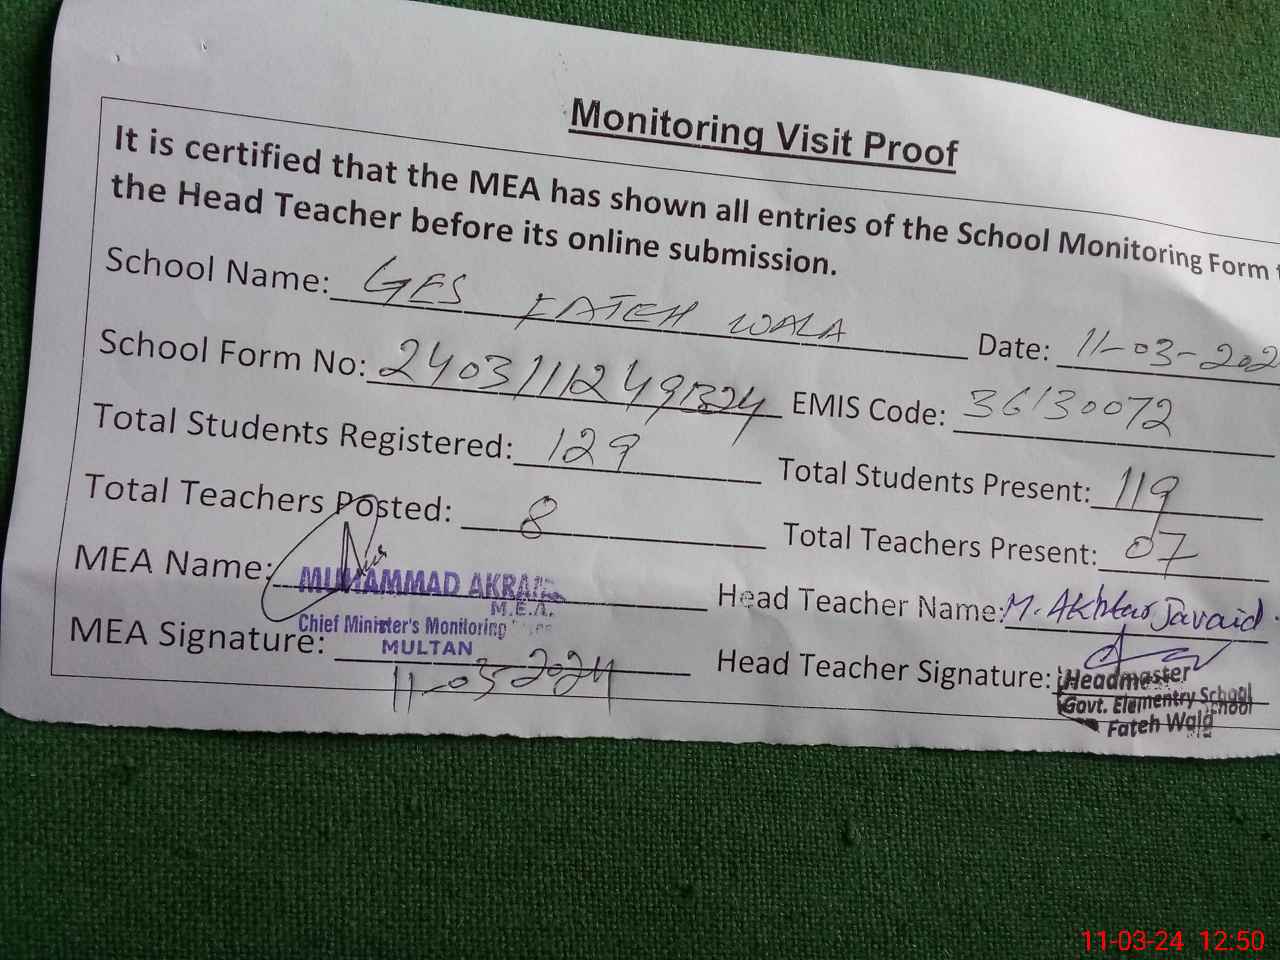 Monitoring Visit Proof
It is certified that the MEA has shown all entries of the School Monitoring Form
the Head Teacher before its online submission.
School Name: GES FATEH WALA Date: 11-03-202
School Form No: EMIS Code: 36130072
Total Students Registered: 129 Total Students Present: 119
Total Teachers Posted: 8 Total Teachers Present: 07
MEA Name: MUHAMMAD AKRAM Head Teacher Name: M. Akhtar Javaid.
M.E.A.
Chief Minister's Monitoring
MULTAN
MEA Signature: 11-03-2024 Head Teacher Signature:
Headmaster
Govt. Elementry School
Fateh Wala
11-03-24 12:50